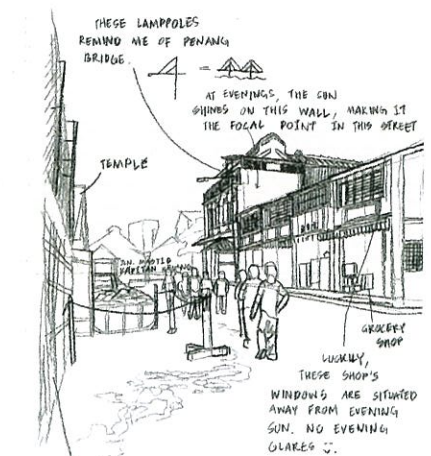 THESE LAMPPOLES
REMIND ME OF PENANG
BRIDGE.
AT EVENINGS, THE SUN
SHINES ON THIS WALL, MAKING IT
THE FOCAL POINT IN THIS STREET
TEMPLE
JLN. MASJID
KAPITAN KELING
GROCERY
SHOP
LUCKILY,
THESE SHOP'S
WINDOWS ARE SITUATED
AWAY FROM EVENING
SUN. NO EVENING
GLARES